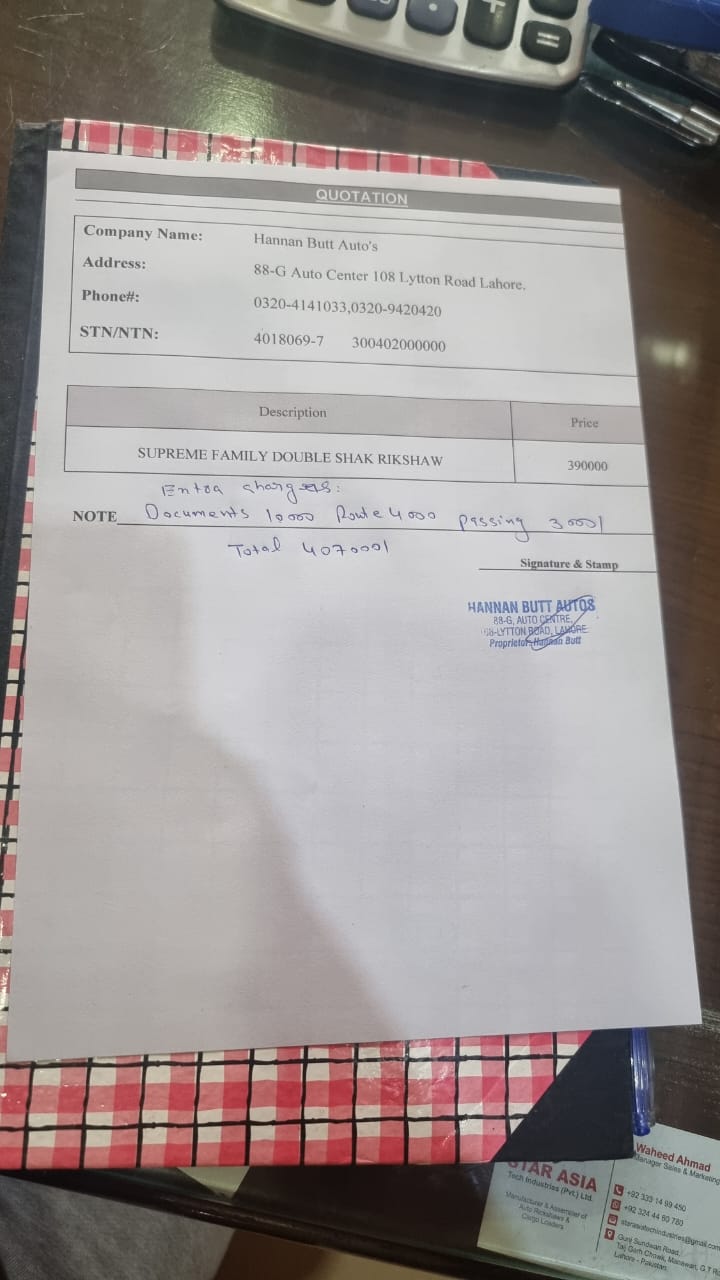 QUOTATION
Company Name: Hannan Butt Auto's
Address: 88-G Auto Center 108 Lytton Road Lahore.
Phone#: 0320-4141033,0320-9420420
STN/NTN: 4018069-7 300402000000
Description Price
SUPREME FAMILY DOUBLE SHAK RIKSHAW 390000
Extra chargers:
NOTE Documents 10000 Route 4000 passing 3000/
Total 407000/
Signature & Stamp
HANNAN BUTT AUTOS
88-G, AUTO CENTRE,
108-LYTTON ROAD, LAHORE
Proprietor: Hannan Butt
STAR ASIA
Tech Industries (Pvt.) Ltd.
Manufacturer & Assembler of
Auto Rickshaws &
Cargo Loaders
Waheed Ahmad
Manager Sales & Marketing
+92 333 14 99 450
+92 324 44 60 780
starasiatechindustries@gmail.com
Gunj Sundwan Road,
Taj Garh Chowk, Manawan, G.T
Lahore - Pakistan.